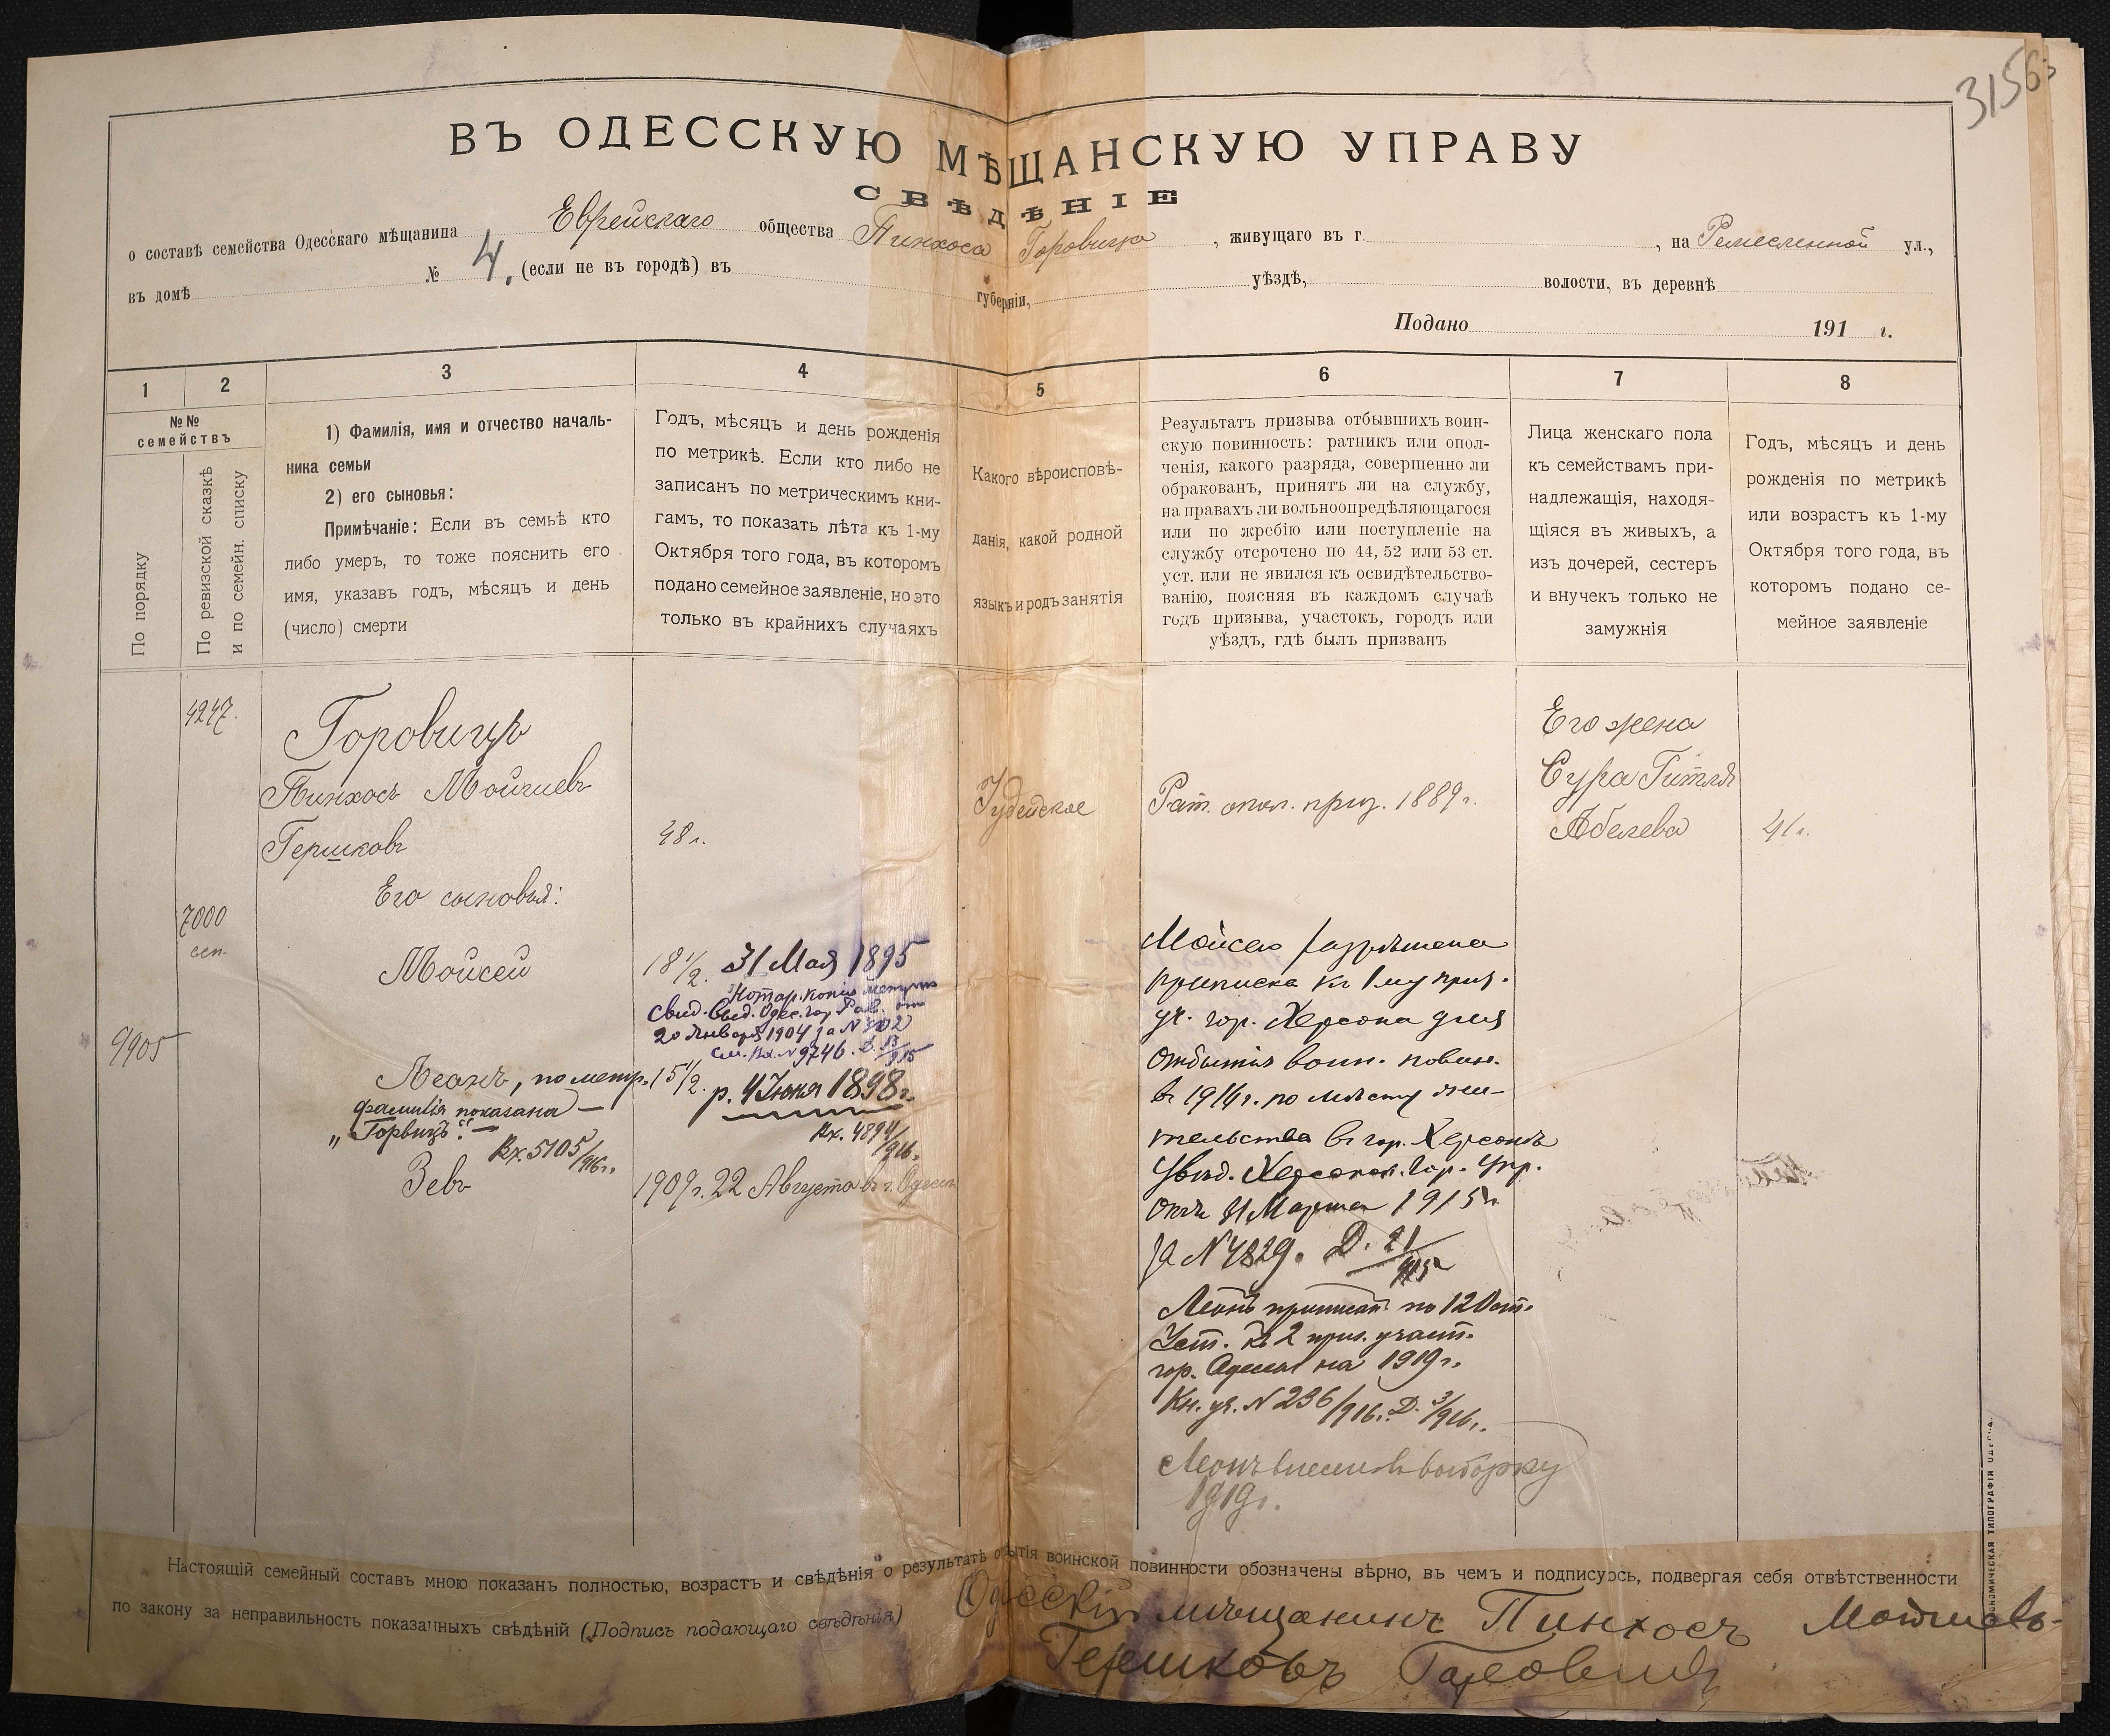 3156
ВЪ ОДЕССКУЮ МѢЩАНСКУЮ УПРАВУ
СВѢДѢНІЕ
о составѣ семейства Одесскаго мѣщанина Еврейскаго общества Пинхоса Горовица, живущаго въ г. , на Ремесленной ул.,
въ домѣ № 4. (если не въ городѣ) въ губерніи, уѣздѣ, волости, въ деревнѣ
Подано 191 г.
1
2
3
4
5
6
7
8
№№
семействъ
По порядку
По ревизской сказкѣ
и по семейн. списку
1) Фамилія, имя и отчество началь-
ника семьи
2) его сыновья:
Примѣчаніе: Если въ семьѣ кто
либо умеръ, то тоже пояснить его
имя, указавъ годъ, мѣсяцъ и день
(число) смерти
Годъ, мѣсяцъ и день рожденія
по метрикѣ. Если кто либо не
записанъ по метрическимъ кни-
гамъ, то показать лѣта къ 1-му
Октября того года, въ которомъ
подано семейное заявленіе, но это
только въ крайнихъ случаяхъ
Какого вѣроисповѣ-
данія, какой родной
языкъ и родъ занятія
Результатъ призыва отбывшихъ воин-
скую повинность: ратникъ или опол-
ченія, какого разряда, совершенно ли
обракованъ, принятъ ли на службу,
на правахъ ли вольноопредѣляющагося
или по жребію или поступленіе на
службу отсрочено по 44, 52 или 53 ст.
уст. или не явился къ освидѣтельство-
ванію, поясняя въ каждомъ случаѣ
годъ призыва, участокъ, городъ или
уѣздъ, гдѣ былъ призванъ
Лица женскаго пола
къ семействамъ при-
надлежащія, находя-
щіяся въ живыхъ, а
изъ дочерей, сестеръ
и внучекъ только не
замужнія
Годъ, мѣсяцъ и день
рожденія по метрикѣ
или возрастъ къ 1-му
Октября того года, въ
которомъ подано се-
мейное заявленіе
4247.
Горовицъ
Пинхосъ Мойшевъ
Гершковъ
48 г.
Іудейское
Рат. опол. приз. 1889 г.
Его жена
Сура Гитля
Абелева
41 г.
Его сыновья:
7000
сем.
Мойсей
18 1/2. 31 Мая 1895
Нотар. копія метрич.
Свид. Выд. Одес. гор. Рав. отъ
20 Января 1904 за N 302
См. Вх. N 9746. Д. 13/915
9905
Леонъ, по метр. 15 1/2. р. 4 Іюня 1898 г.
фамилія показана —
„Горвицъ“. —
Вх. 5105/916 г.
Вх. 4894/916.
Зевъ
1909 г. 22 Августа въ г. Одессѣ
Мойсею разрѣшена
приписка къ 1 му приз.
уч. гор. Херсона для
отбытія воин. повин.
въ 1914 г. по мѣсту жи-
тельства въ гор. Херсонѣ
Увѣд. Херсонск. Гор. Упр.
отъ 11 Марта 1915 г.
за N 4829. Д. 21/915
Леонъ приписанъ по 120 ст.
Уст. къ 2 приз. участ.
гор. Одессы на 1919 г.
Кн. уч. N 236/916. Д. 3/916.
Леонъ внесенъ въ выборку
1919 г.
Настоящій семейный составъ мною показанъ полностью, возрастъ и свѣдѣнія о результатѣ отбытія воинской повинности обозначены вѣрно, въ чемъ и подписуюсь, подвергая себя отвѣтственности
по закону за неправильность показанныхъ свѣдѣній (Подпись подающаго свѣдѣнія) Одесскій мѣщанинъ Пинхосъ Мойшевъ-
Гершковъ Горовицъ